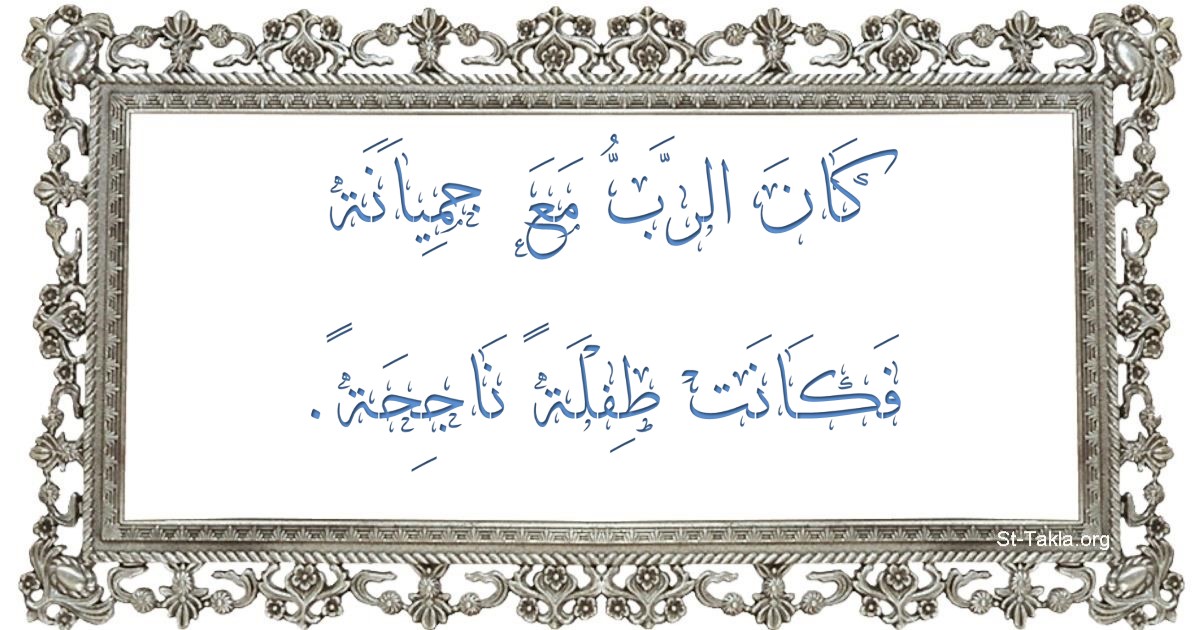 كَانَ الرَّبُّ مَعَ جِمِيَانَة
فَكَانَت طِفْلَةً نَاجِحَةً.
St-Takla.org